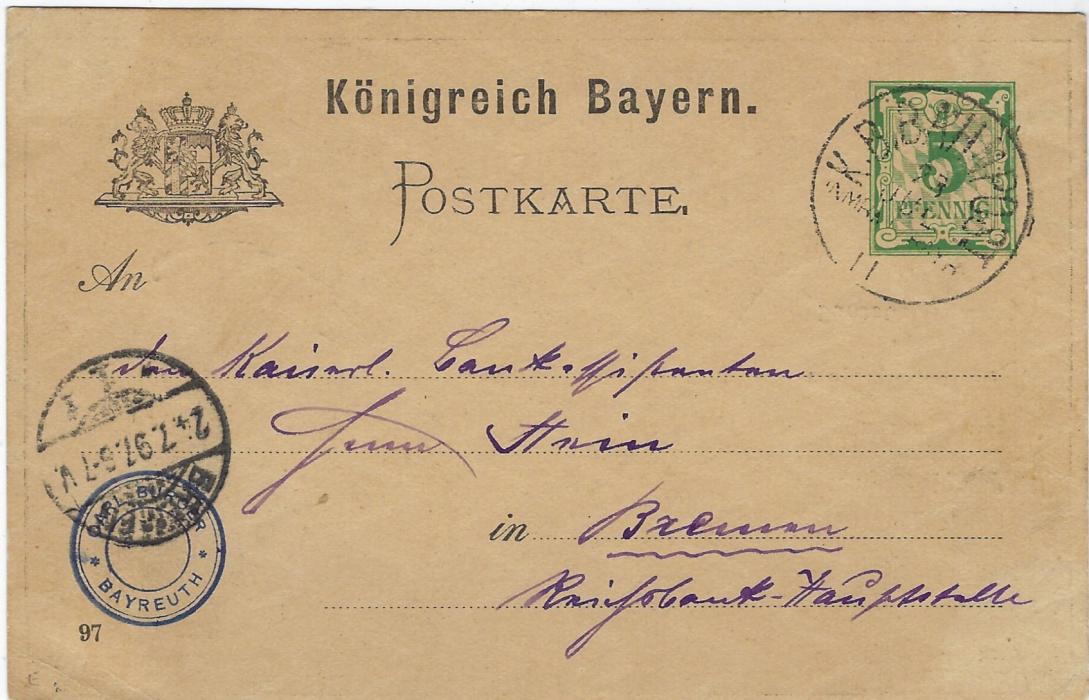 Königreich Bayern.
POSTKARTE.
5
PFENNIG
11
An
den Kaiserl. Bankassistenten
Herrn Stein
in Bremen
Reichsbank-Hauptstelle
24.7.97.6-7V.
CARL BURGER
* BAYREUTH *
97